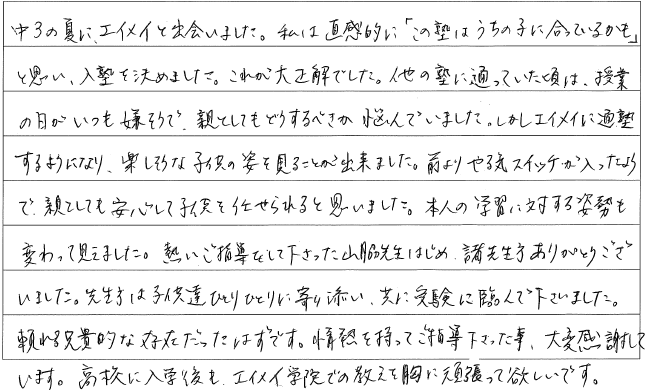 中3の夏に、エイメイと出会いました。私は直感的に「この塾はうちの子に合っているかも」
と思い、入塾を決めました。これが大正解でした。他の塾に通っていた頃は、授業
の日がいつも嫌そうで、親としてもどうするべきか悩んでいました。しかしエイメイに通塾
するようになり、楽しそうな子供の姿を見ることが出来ました。前よりやる気スイッチが入ったよう
で、親としても安心して子供を任せられると思いました。本人の学習に対する姿勢も
変わって見えました。熱いご指導をして下さった山脇先生はじめ、諸先生方ありがとうござ
いました。先生方は子供達ひとりひとりに寄り添い、共に受験に臨んで下さいました。
頼れる兄貴的な存在だったはずです。情熱を持ってご指導下さった事、大変感謝して
います。高校に入学後も、エイメイ学院での教えを胸に頑張って欲しいです。